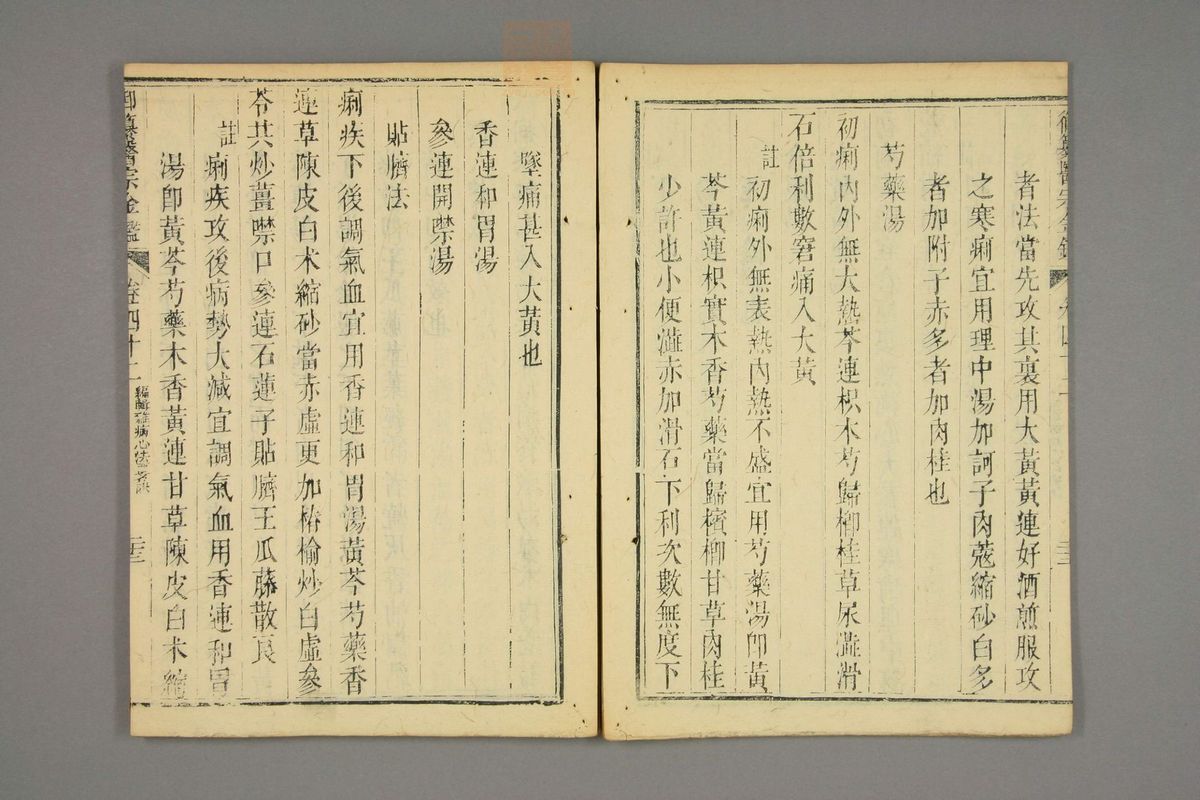 御纂醫宗金鑑
卷四十二
者法當先攻其裏用大黃黃連好酒煎服攻
之寒痢宜用理中湯加訶子肉蔻縮砂白多
者加附子赤多者加肉桂也
芍藥湯
初痢內外無大熱芩連枳木芍歸檳桂草尿澁滑
石倍利數窘痛入大黃
註
初痢外無表熱內熱不盛宜用芍藥湯卽黃
芩黃連枳實木香芍藥當歸檳榔甘草肉桂
少許也小便澁赤加滑石下利次數無度下
墜痛甚入大黃也
香連和胃湯
參連開噤湯
貼臍法
痢疾下後調氣血宜用香連和胃湯黃芩芍藥香
連草陳皮白朮縮砂當赤虛更加椿榆炒白虛參
苓共炒薑噤口參連石蓮子貼臍王瓜藤散良
註
痢疾攻後病勢大減宜調氣血用香連和胃
湯卽黃芩芍藥木香黃連甘草陳皮白朮縮
御纂醫宗金鑑
卷四十二
編輯雜病心法要訣
三三